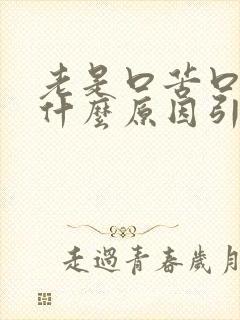 老是口苦口
什麼原因引
走過青春歲月